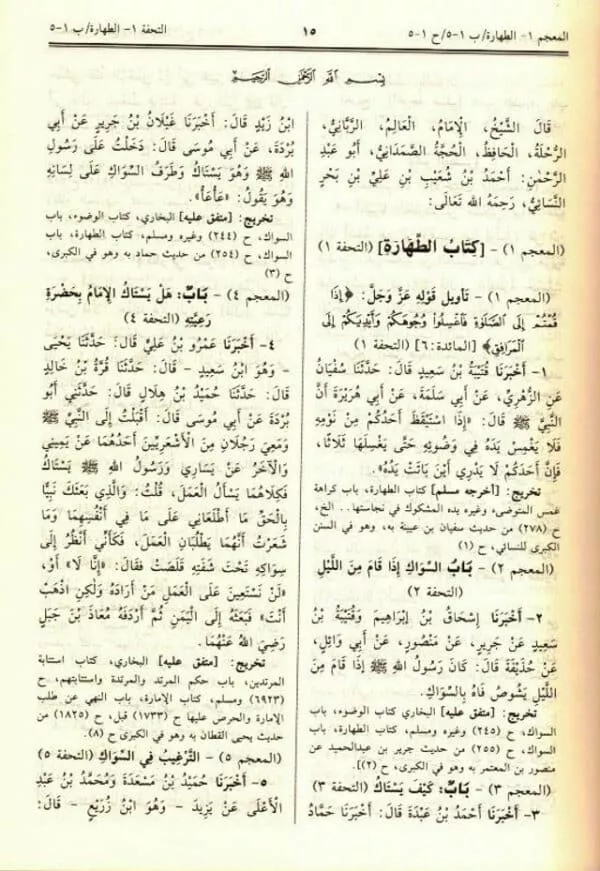 المعجم ١- الطهارة/ ب ١-٥/ ح ١-٥
١٥
التحفة ١- الطهارة/ ب ١-٥
بِسْمِ اللَّهِ الرَّحْمَٰنِ الرَّحِيمِ
قَالَ الشَّيْخُ، الْإِمَامُ، الْعَالِمُ، الرَّبَّانِيُّ،
الرُّحْلَةُ، الْحَافِظُ، الْحُجَّةُ الصَّمَدَانِيُّ، أَبُو عَبْدِ
الرَّحْمٰنِ: أَحْمَدُ بْنُ شُعَيْبِ بْنِ عَلِيِّ بْنِ بَحْرٍ
النَّسَائِيُّ، رَحِمَهُ اللهُ تَعَالَى:
(المعجم ١) - [كِتَابُ الطَّهَارَةِ] (التحفة ١)
(المعجم ١) - تَأْوِيلُ قَوْلِهِ عَزَّ وَجَلَّ: ﴿إِذَا
قُمْتُمْ إِلَى الصَّلَوٰةِ فَاغْسِلُوا وُجُوهَكُمْ وَأَيْدِيَكُمْ إِلَى
الْمَرَافِقِ﴾ [المائدة:٦] (التحفة ١)
١- أَخْبَرَنَا قُتَيْبَةُ بْنُ سَعِيدٍ قَالَ: حَدَّثَنَا سُفْيَانُ
عَنِ الزُّهْرِيِّ، عَنْ أَبِي سَلَمَةَ، عَنْ أَبِي هُرَيْرَةَ أَنَّ
النَّبِيَّ ﷺ قَالَ: «إِذَا اسْتَيْقَظَ أَحَدُكُمْ مِنْ نَوْمِهِ
فَلَا يَغْمِسْ يَدَهُ فِي وَضُوئِهِ حَتَّى يَغْسِلَهَا ثَلَاثًا،
فَإِنَّ أَحَدَكُمْ لَا يَدْرِي أَيْنَ بَاتَتْ يَدُهُ».
تخريج: [أخرجه مسلم] كتاب الطهارة، باب كراهة
غمس المتوضىء وغيره يده المشكوك في نجاستها.. الخ،
(٢٧٨) من حديث سفيان بن عيينة به، وهو في السنن
الكبرى للنسائي، ح (١)
(المعجم ٢) - بَابُ السِّوَاكِ إِذَا قَامَ مِنَ اللَّيْلِ
(التحفة ٢)
٢- أَخْبَرَنَا إِسْحَاقُ بْنُ إِبْرَاهِيمَ وَقُتَيْبَةُ بْنُ
سَعِيدٍ عَنْ جَرِيرٍ، عَنْ مَنْصُورٍ، عَنْ أَبِي وَائِلٍ،
عَنْ حُذَيْفَةَ قَالَ: كَانَ رَسُولُ اللهِ ﷺ إِذَا قَامَ مِنَ
اللَّيْلِ يَشُوصُ فَاهُ بِالسِّوَاكِ.
تخريج: [متفق عليه] البخاري، كتاب الوضوء، باب
السواك، ح (٢٤٥) وغيره، ومسلم، كتاب الطهارة، باب
السواك، ح (٢٥٥) من حديث جرير بن عبدالحميد عن
منصور بن المعتمر به وهو في الكبرى، ح (٢)].
(المعجم ٣) - بَابٌ: كَيْفَ يَسْتَاكُ (التحفة ٣)
٣- أَخْبَرَنَا أَحْمَدُ بْنُ عَبْدَةَ قَالَ: أَخْبَرَنَا حَمَّادُ
ابْنُ زَيْدٍ قَالَ: أَخْبَرَنَا غَيْلَانُ بْنُ جَرِيرٍ عَنْ أَبِي
بُرْدَةَ، عَنْ أَبِي مُوسَى قَالَ: دَخَلْتُ عَلَى رَسُولِ
اللهِ ﷺ وَهُوَ يَسْتَاكُ وَطَرَفُ السِّوَاكِ عَلَى لِسَانِهِ
وَهُوَ يَقُولُ: «عَأْعَأْ».
تخريج: [متفق عليه] البخاري، كتاب الوضوء، باب
السواك، ح (٢٤٤) وغيره ومسلم، كتاب الطهارة، باب
السواك، ح (٢٥٤) من حديث حماد به وهو في الكبرى،
ح (٣)
(المعجم ٤) - بَابٌ: هَلْ يَسْتَاكُ الْإِمَامُ بِحَضْرَةِ
رَعِيَّتِهِ (التحفة ٤)
٤- أَخْبَرَنَا عَمْرُو بْنُ عَلِيٍّ قَالَ: حَدَّثَنَا يَحْيَى
- وَهُوَ ابْنُ سَعِيدٍ - قَالَ: حَدَّثَنَا قُرَّةُ بْنُ خَالِدٍ
قَالَ: حَدَّثَنَا حُمَيْدُ بْنُ هِلَالٍ قَالَ: حَدَّثَنِي أَبُو
بُرْدَةَ عَنْ أَبِي مُوسَى قَالَ: أَقْبَلْتُ إِلَى النَّبِيِّ ﷺ
وَمَعِيَ رَجُلَانِ مِنَ الْأَشْعَرِيِّينَ أَحَدُهُمَا عَنْ يَمِينِي
وَالْآخَرُ عَنْ يَسَارِي وَرَسُولُ اللهِ ﷺ يَسْتَاكُ
فَكِلَاهُمَا يَسْأَلُ الْعَمَلَ، قُلْتُ: وَالَّذِي بَعَثَكَ نَبِيًّا
بِالْحَقِّ مَا أَطْلَعَانِي عَلَى مَا فِي أَنْفُسِهِمَا وَمَا
شَعَرْتُ أَنَّهُمَا يَطْلُبَانِ الْعَمَلَ، فَكَأَنِّي أَنْظُرُ إِلَى
سِوَاكِهِ تَحْتَ شَفَتِهِ قَلَصَتْ فَقَالَ: «إِنَّا لَا» أَوْ،
«لَنْ نَسْتَعِينَ عَلَى الْعَمَلِ مَنْ أَرَادَهُ وَلٰكِنِ اذْهَبْ
أَنْتَ» فَبَعَثَهُ إِلَى الْيَمَنِ ثُمَّ أَرْدَفَهُ مُعَاذَ بْنَ جَبَلٍ
رَضِيَ اللهُ عَنْهُمَا.
تخريج: [متفق عليه] البخاري، كتاب استتابة
المرتدين، باب حكم المرتد والمرتدة واستتابتهم، ح
(٦٩٢٣) ومسلم، كتاب الإمارة، باب النهي عن طلب
الإمارة والحرص عليها ح (١٧٣٣) قبل، ح (١٨٢٥) من
حديث يحيى القطان به وهو في الكبرى ح (٨).
(المعجم ٥) - التَّرْغِيبُ فِي السِّوَاكِ (التحفة ٥)
٥- أَخْبَرَنَا حُمَيْدُ بْنُ مَسْعَدَةَ وَمُحَمَّدُ بْنُ عَبْدِ
الْأَعْلَى عَنْ يَزِيدَ - وَهُوَ ابْنُ زُرَيْعٍ - قَالَ: